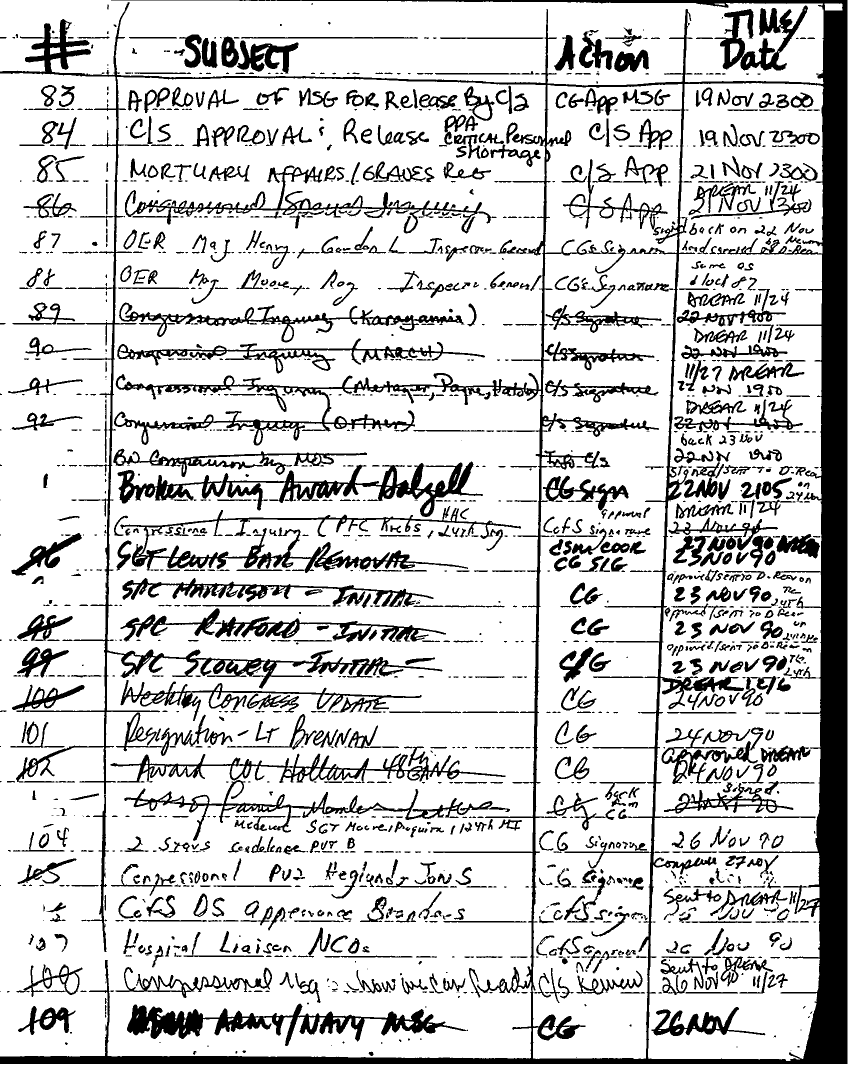 # SUBJECT Action TIME/Date
83 APPROVAL OF MSG FOR Release By C/S CG App MSG 19 Nov 2300
84 C/S APPROVAL: Release PPA CRITICAL Personnel Shortages C/S App 19 Nov 2300
85 MORTUARY AFFAIRS/GRAVES REG C/S App 21 Nov 2300
DREAR 11/24
86 Congressional/Special Inquiry C/S App 21 Nov 1300
signed back on 22 Nov
87 OER Maj Henry, Gordon L Inspector General CG's Signature hand carried to D-Rear
same as
88 OER Maj Moore, Roy Inspector General CG's Signature block 87
DREAR 11/24
89 Congressional Inquiry (Karagannis) C/S Signature 22 NOV 1900
DREAR 11/24
90 Congressional Inquiry (MARCH) C/S Signature 22 NOV 1900
11/27 DREAR
91 Congressional Inquiry (Metzger, Payne, ) C/S Signature 22 NOV 1930
DREAR 11/24
92 Congressional Inquiry (Ortner) C/S Signature 22 NOV 1900
back 23 Nov
BN Comparison by MOS Info C/S 22 NOV 1900
signed/sent to D-Rear on 24 Nov
Broken Wing Award-Dalzell CG Sign 22 NOV 2105
DREAR 11/24
Congressional Inquiry (PFC Krebs, HHC, 24th Sig CofS signature approval 23 Nov 90
27 NOV 90 DREAR
96 SGT LEWIS BAR REMOVAL CSM/COOR CG SIG 23 NOV 90
approved/sent to D-Rear on
SPC HARRISON - INITIAL CG 23 NOV 90 24th
approved/sent to D-Rear on
98 SPC RATFORD - INITIAL CG 23 NOV 90
approved/sent to D-Rear on
99 SPC SLOWEY - INITIAL CG 23 NOV 90 24th
DREAR 12/6
100 Weekley CONGRESS UPDATE CG 24 NOV 90
101 Resignation - LT BRENNAN CG 24 NOV 90
approved DREAR
102 Award COL Holland 48th CG 24 NOV 90
signed
Loss of Family Member Letters CG back from CG 24 90
SGT Moore, 124th MI
104 2 condolence PVT B CG signature 26 Nov 90
complete 27 nov
105 Congressional PV2 Heglund, Jon S CG Signature
Sent to DREAR 11/27
CofS DS Appearance Standards CofS sign 26 Nov 90
107 Hospital Liaison NCOs CofS approval 26 Nov 90
Sent to DREAR
108 Congressional how we can C/S Review 26 Nov 90 11/27
109 ARMY/NAVY MSG CG 26 NOV